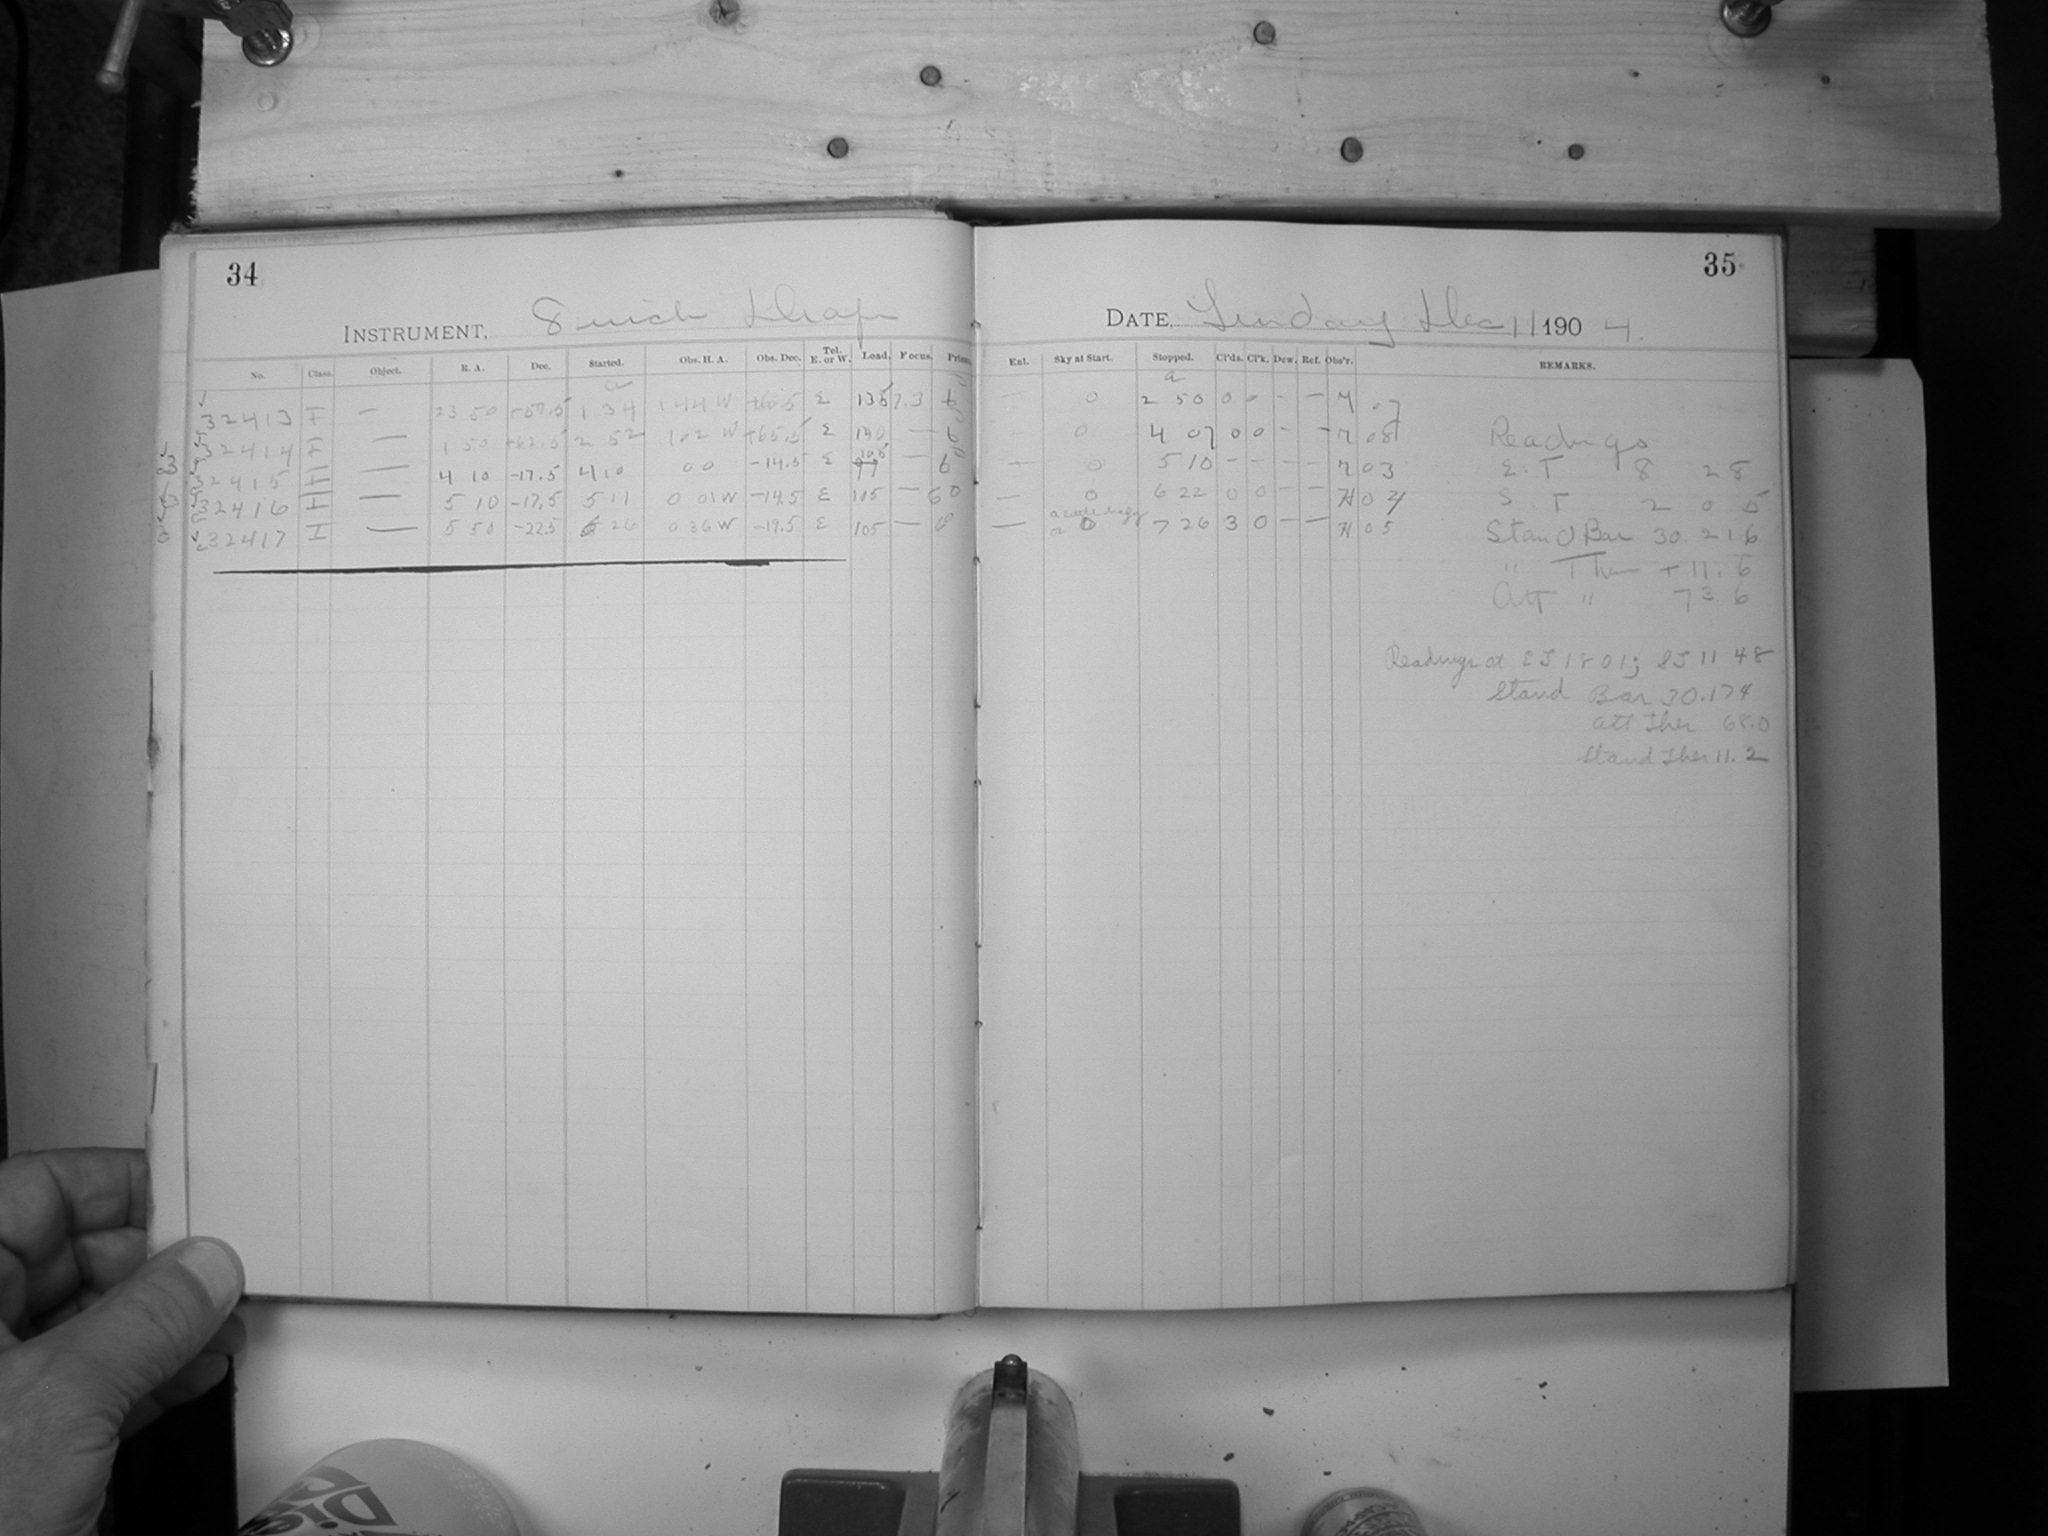 34
INSTRUMENT, 8 inch Draper
No. Class. Object. R. A. Dec. Started. Obs. H. A. Obs. Dec. Tel. E. or W. Load. Focus. Prism
a
32413 F — 23 50 +57.5 1 34 1 44 W +60.5 E 135 7.3 6
32414 F — 1 50 +62.5 2 52 1 02 W +65.5 E 140 — 6
32415 — 4 10 -17.5 4 10 0 0 -14.5 E 105 — 6
32416 I — 5 10 -17.5 5 11 0 01 W -14.5 E 105 — 60
32417 I — 5 50 -22.5 6 26 0 36 W -19.5 E 105 — 0
35
DATE, Sunday Dec 11 1904.
Ent. Sky at Start. Stopped. Cl'ds. Cl'k. Dew. Ref. Obs'r. REMARKS.
a
— 0 2 50 0 0 - — M 07
- 0 4 07 0 0 - - M 08
— 0 5 10 - - - — M 03
— 0 6 22 0 0 — — H 04
— a little hazy or 0 7 26 3 0 — — H 05
Readings
E. T 8 28
S T 2 0 5
Stand Bar 30.216
" Ther +11.6
Att " 73.6
Readings at ET 18 01; ST 11 48
Stand Bar 30.174
att Ther 68.0
Stand Ther 11.2
Die